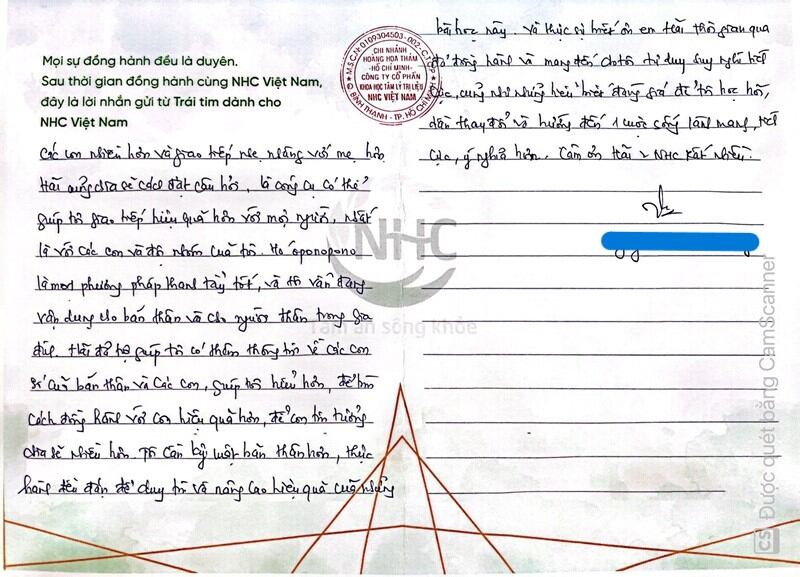 Mọi sự đồng hành đều là duyên.
Sau thời gian đồng hành cùng NHC Việt Nam,
đây là lời nhắn gửi từ Trái tim dành cho
NHC Việt Nam
M.S.C.N: 0109304503-002-C.T.C.P
CHI NHÁNH
HOÀNG HOA THÁM
-HỒ CHÍ MINH-
CÔNG TY CỔ PHẦN
KHOA HỌC TÂM LÝ TRỊ LIỆU
NHC VIỆT NAM
BÌNH THẠNH - TP. HỒ CHÍ MINH
Các con nhiều hơn và giao tiếp nhẹ nhàng với mẹ hơn
Hải cũng chia sẻ cách đặt câu hỏi, là công cụ có thể
giúp tôi giao tiếp hiệu quả hơn với mọi người, nhất
là với các con và đội nhóm của tôi. Ho'oponopono
là một phương pháp thanh tẩy tốt, và tôi vẫn đang
vận dụng cho bản thân và cho người thân trong gia
đình. Hải đã hỗ giúp tôi có thêm thông tin về các con
số của bản thân và các con, giúp tôi hiểu hơn, để tìm
cách đồng hành với con hiệu quả hơn, để con tin tưởng
chia sẻ nhiều hơn. Tôi cần kỷ luật bản thân hơn, thực
hành đều đặn để duy trì và nâng cao hiệu quả của những
bài học này. Và thực sự biết ơn em Hải thời gian qua
đã đồng hành và mang đến cho tôi tư duy suy nghĩ tích
cực, cũng như những hiểu biết đáng giá để tôi học hỏi,
dần thay đổi và hướng đến 1 cuộc sống lành mạnh, tích
cực, ý nghĩa hơn. Cảm ơn Hải & NHC rất nhiều.
NHC
Tâm an sống khỏe
CS Được quét bằng CamScanner